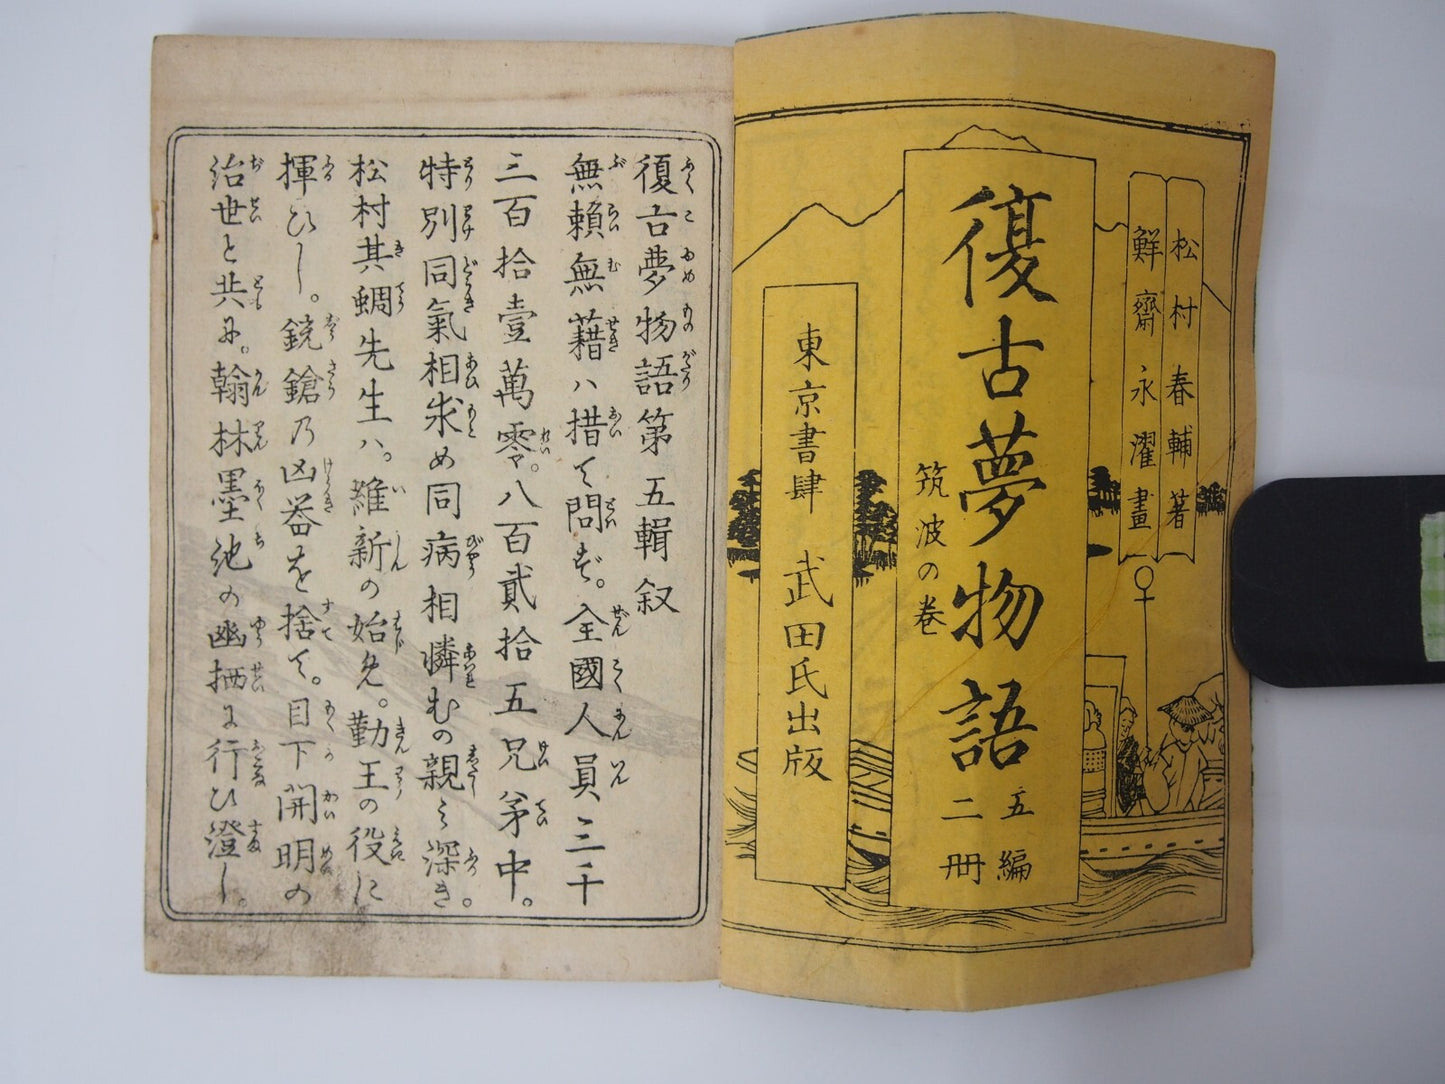 松村春輔著
鮮齋永濯畫
復古夢物語
五編
二冊
筑波の巻
東京書肆 武田氏出版
復古夢物語第五輯叙
無頼無藉ハ措て問ず。全國人員三千
三百拾壹萬零。八百貳拾五兄弟中。
特別同氣相求め同病相憐むの親ミ深き。
松村其蜩先生ハ。維新の始免。勤王の役に
揮ひし。銃鎗乃凶器を捨て。目下開明の
治世と共に。翰林墨池の幽栖に行ひ澄し。